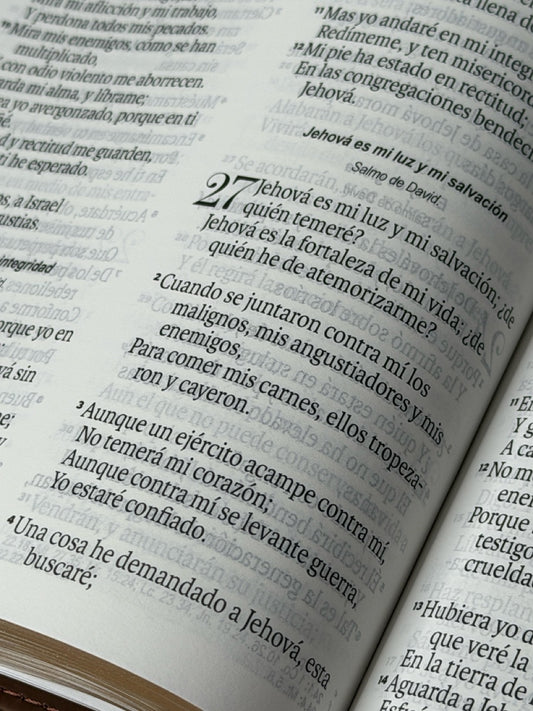 mi aflicción y mi trabajo,
Y perdona todos mis pecados.
19 Mira mis enemigos, cómo se han
multiplicado,
con odio violento me aborrecen.
arda mi alma, y líbrame;
ea yo avergonzado, porque en ti
é.
d y rectitud me guarden,
ti he esperado.
s, a Israel
gustias.
integridad
orque yo en
vá sin
llena de
11 Mas yo andaré en mi integr
Redímeme, y ten misericord
12 Mi pie ha estado en rectitud;
En las congregaciones bendeci
Jehová.
Jehová es mi luz y mi salvación
Salmo de David.
27 Jehová es mi luz y mi salvación; ¿de
quién temeré?
Jehová es la fortaleza de mi vida; ¿de
quién he de atemorizarme?
2 Cuando se juntaron contra mí los
malignos, mis angustiadores y mis
enemigos,
Para comer mis carnes, ellos tropeza-
ron y cayeron.
3 Aunque un ejército acampe contra mí,
No temerá mi corazón;
Aunque contra mí se levante guerra,
Yo estaré confiado.
4 Una cosa he demandado a Jehová, esta
buscaré;
11 En
Y g
A ca
12 No m
enem
Porque
testigo
crueldad
13 Hubiera yo d
que veré la
En la tierra de
14 Aguarda a Jeh
Esfué